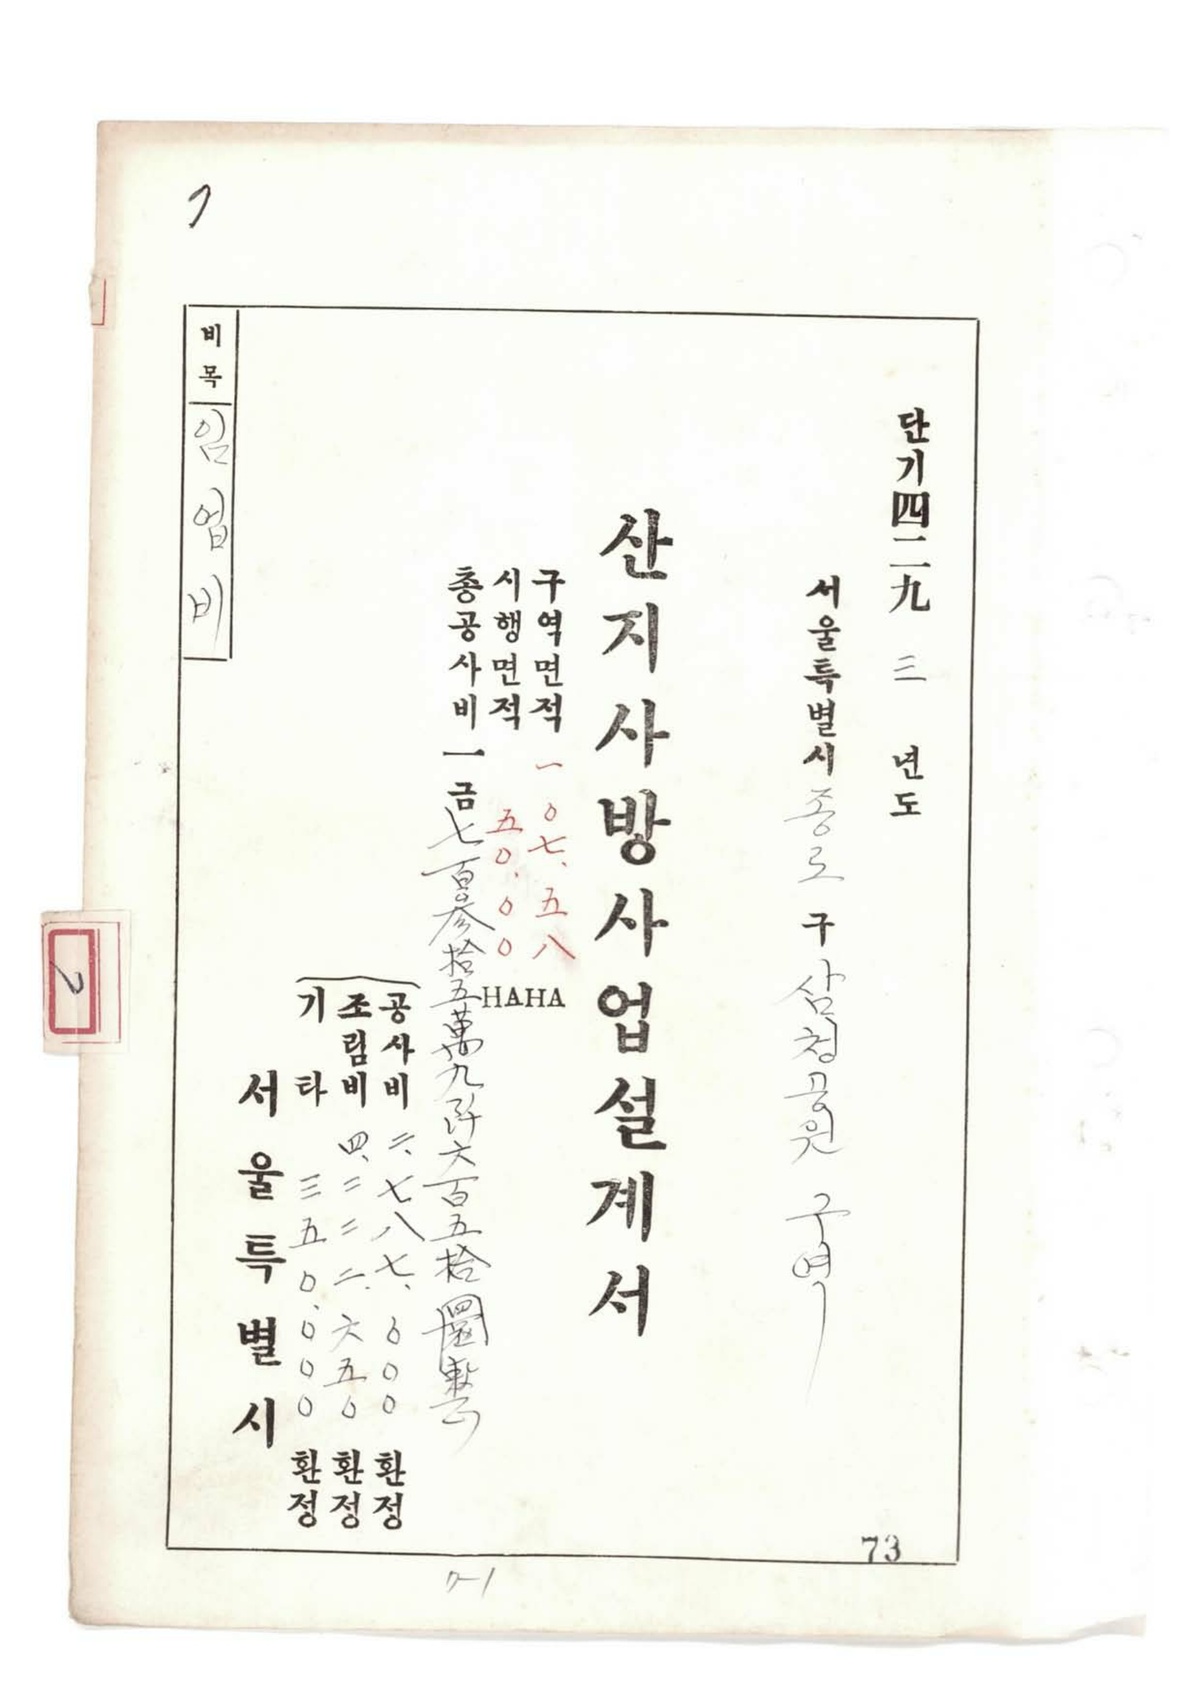 7
단기四二九三년도
서울특별시종로구 삼청공원 구역
산지사방사업설계서
구역면적 一〇七.五八HA
시행면적 五〇.〇〇HA
총공사비一금七百參拾五萬九阡六百五拾圜整
공사비 二,七八七,〇〇〇 환정
조림비 四,二二二,六五〇 환정
기타 三五〇,〇〇〇 환정
서울특별시
비목
임업비
73
7-1